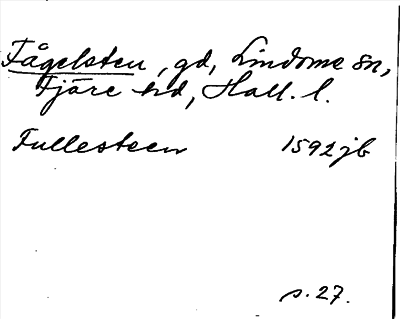 Fågelsten, gd, Lindome sn,
Fjäre hd, Hall. l.
Fullesteen 1592 jb
s. 27.